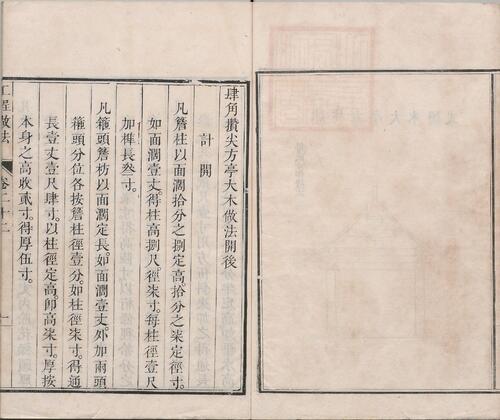 肆角攢尖方亭大木做法開後
計開
凡簷柱以面濶拾分之捌定高拾分之柒定徑寸
如面濶壹丈得柱高捌尺徑柒寸每柱徑壹尺
加榫長叁寸
凡箍頭簷枋以面濶定長如面濶壹丈外加兩頭
箍頭分位各按簷柱徑壹分如柱徑柒寸得通
長壹丈壹尺肆寸以柱徑定高卽高柒寸厚按
本身之高收貳寸得厚伍寸
工程做法 卷二十二 一